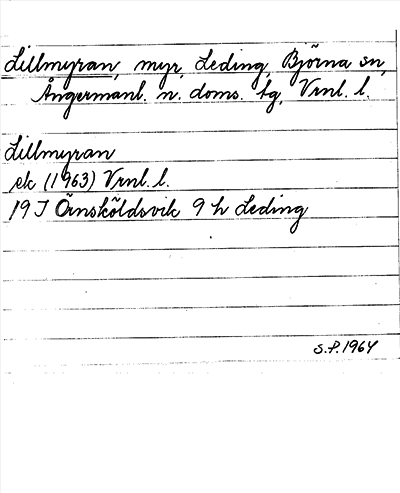 Lillmyran, myr, Leding, Björna sn,
Ångermanl. n. doms. tg, Vrnl. l.
Lillmyran
ek (1963) Vrnl. l.
19 J Örnsköldsvik 9 h Leding
S.P. 1964